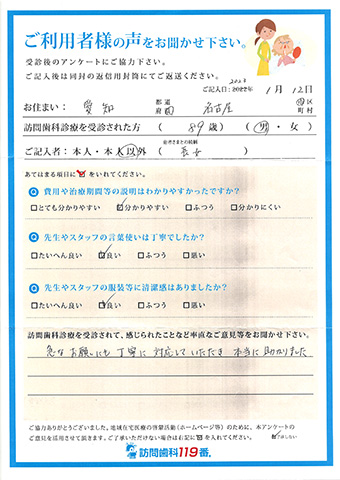 ご利用者様の声をお聞かせ下さい。
受診後のアンケートにご協力下さい。
ご記入後は同封の返信用封筒にてご返送ください。
2023
ご記入日：2022年 1月 12日
お住まい： 愛知 都道府県 名古屋 市区町村
訪問歯科診療を受診された方 （ 89 歳） （ 男 ・ 女 ）
ご記入者：本人・本人以外 （ 患者さまとの続柄 長女 ）
あてはまる項目に☑をいれてください。
Q 費用や治療期間等の説明はわかりやすかったですか？
□とても分かりやすい ☑分かりやすい □ふつう □分かりにくい
Q 先生やスタッフの言葉使いは丁寧でしたか？
□たいへん良い ☑良い □ふつう □悪い
Q 先生やスタッフの服装等に清潔感はありましたか？
□たいへん良い ☑良い □ふつう □悪い
訪問歯科診療を受診されて、感じられたことなど率直なご意見等をお聞かせ下さい。
急なお願いにも丁寧に対応していただき 本当に助かりました
ご協力ありがとうございました。地域在宅医療の啓蒙活動（ホームページ等）のために、本アンケートの
ご意見を活用させて頂きます。ご了承いただけない場合は右記に☑を入れてください。 ☑了承しない
訪問歯科119番®